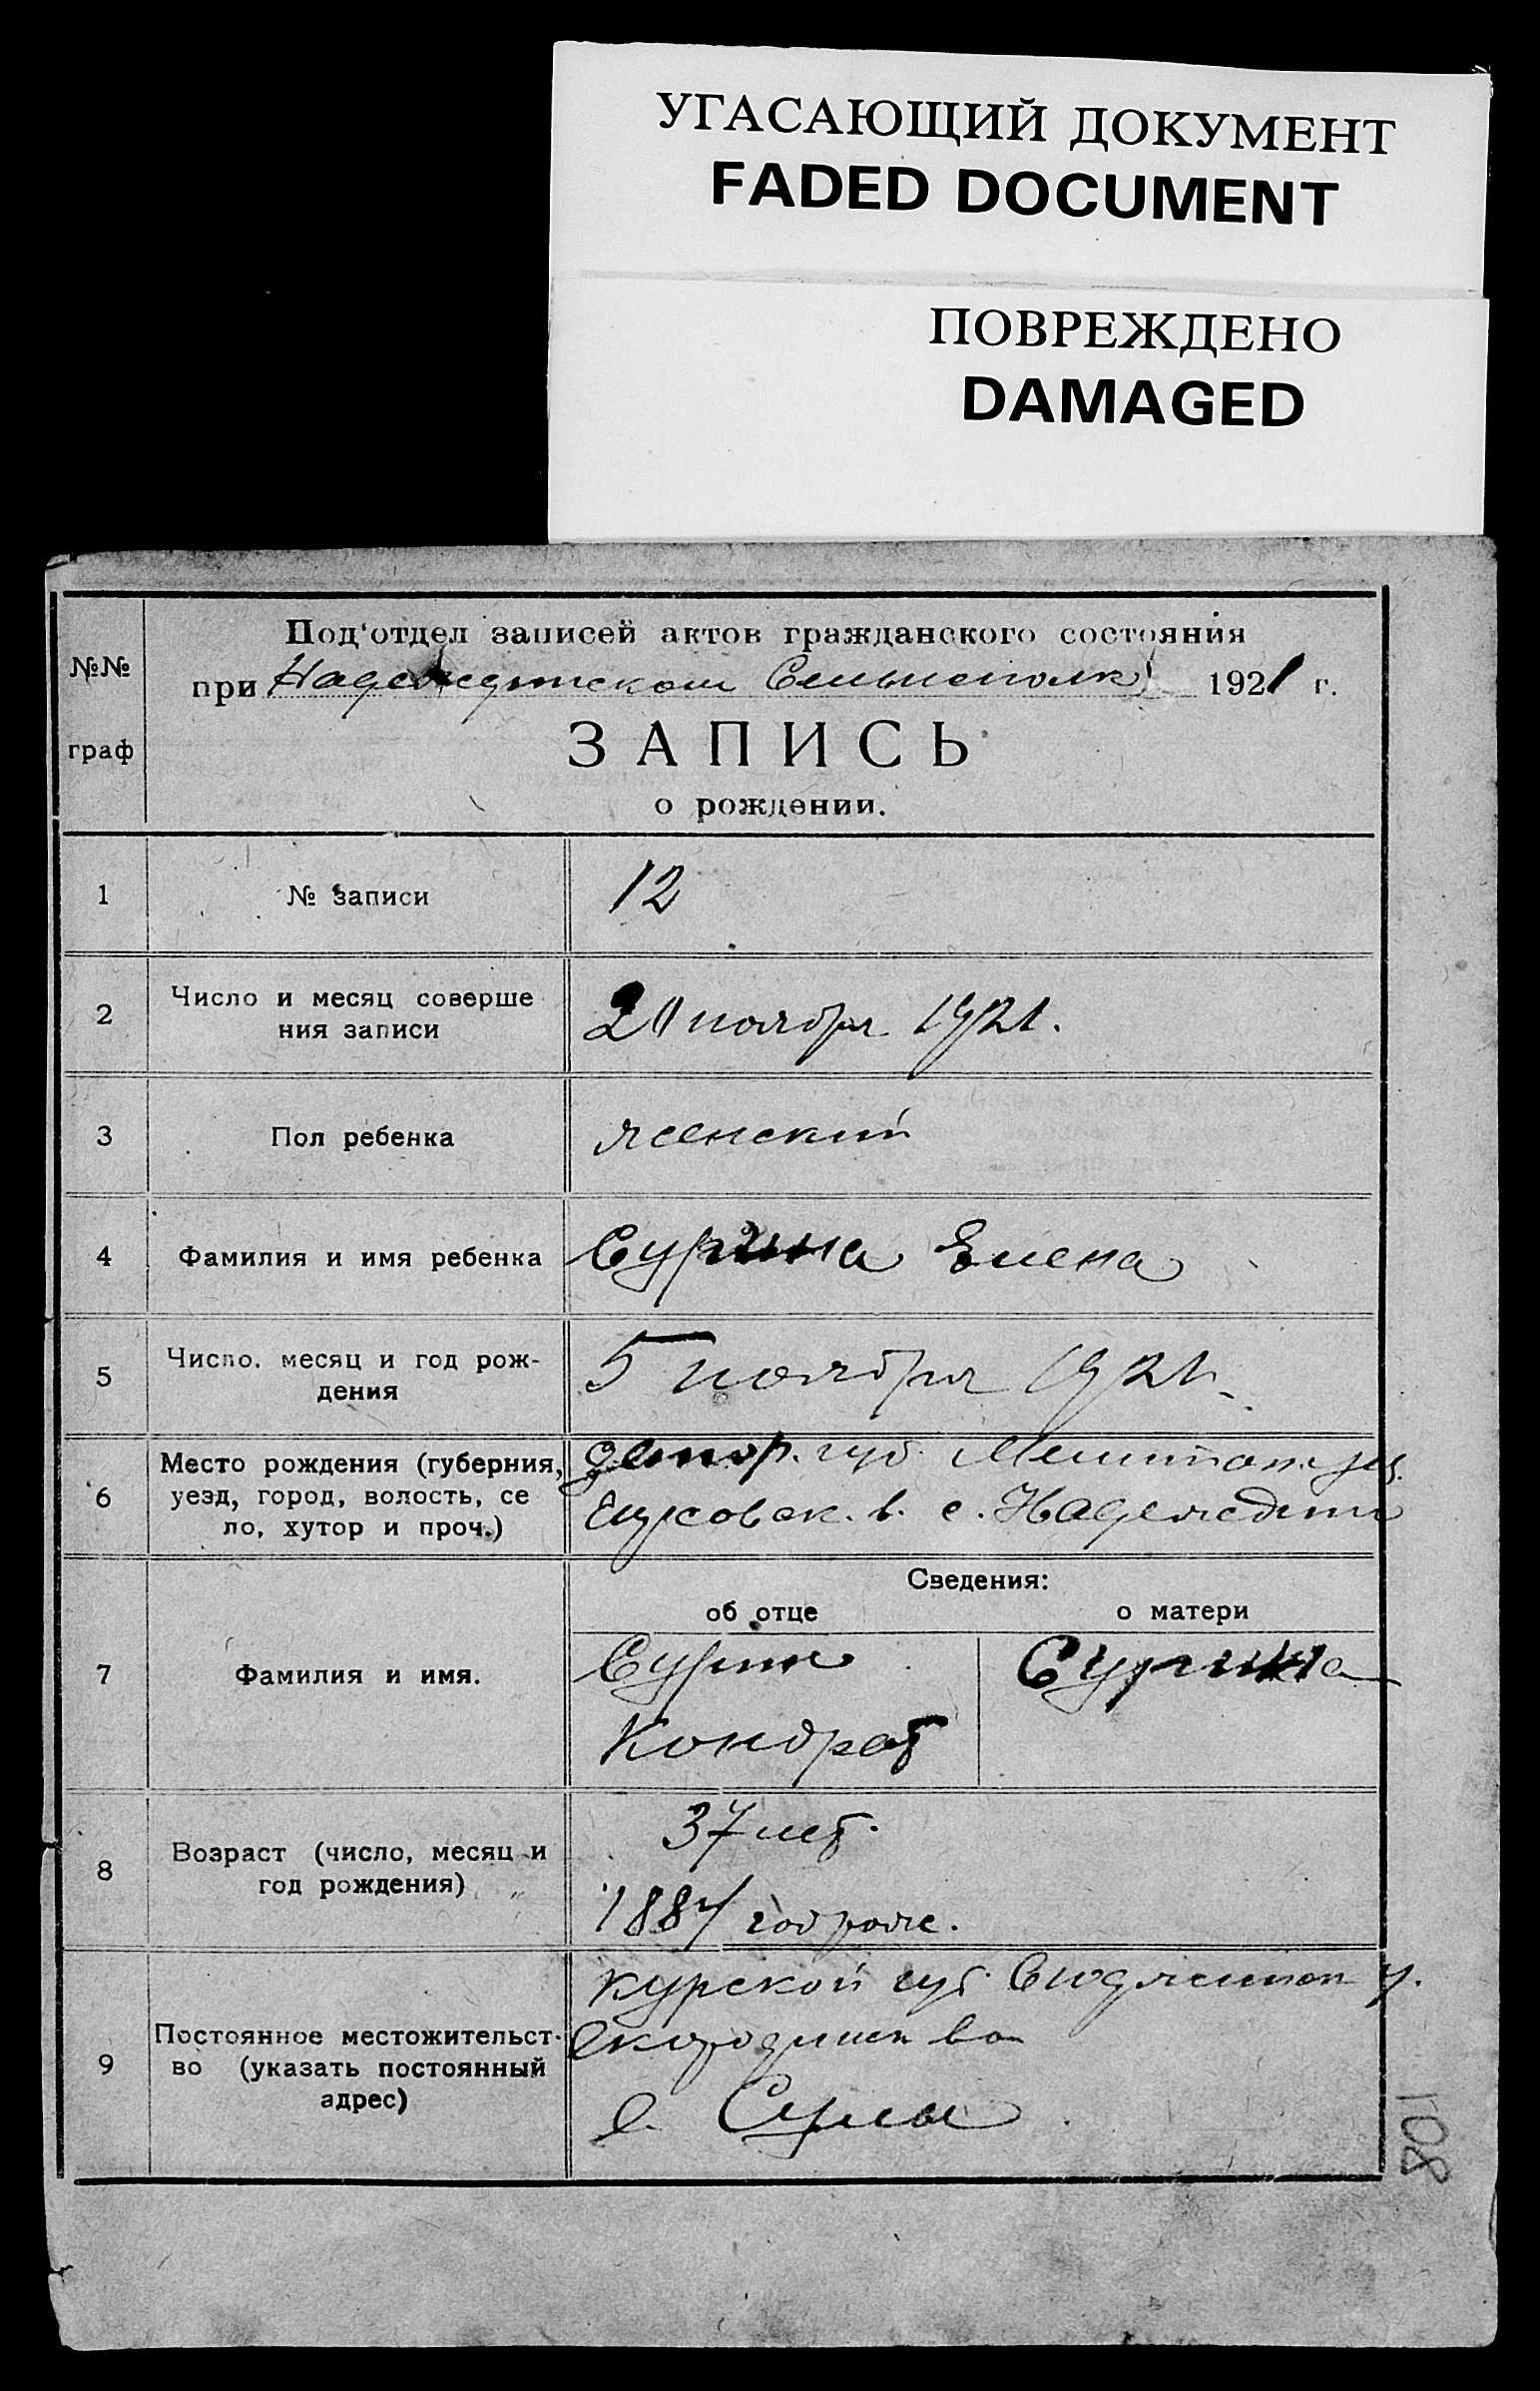 УГАСАЮЩИЙ ДОКУМЕНТ
FADED DOCUMENT
ПОВРЕЖДЕНО
DAMAGED
№№
граф
Под‘отдел записей актов гражданского состояния
при 1921 г.
ЗАПИСЬ
о рождении.
1
№ записи
12
2
Число и месяц соверше
ния записи
ноября 1921.
3
Пол ребенка
женский
4
Фамилия и имя ребенка
Сурина Елена
5
Число. месяц и год рож-
дения
5 ноября 1921.
6
Место рождения (губерния,
уезд, город, волость, се
ло, хутор и проч.)
губ.
в. с.
Сведения:
об отце
о матери
7
Фамилия и имя.
Сурин
Кондрат
Сурина
8
Возраст (число, месяц и
год рождения)
37 лет.
1887 год рож.
9
Постоянное местожительст-
во (указать постоянный
адрес)
Курской губ. у.
с.
108